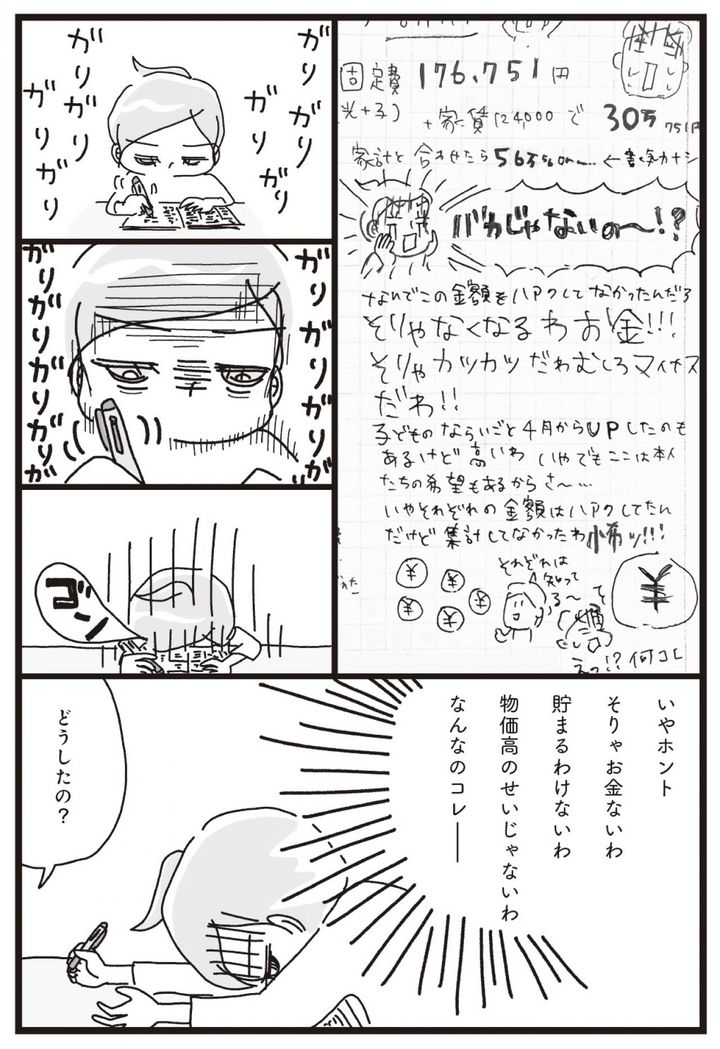 固定費 176,751円
光+子) +家賃124000で 30万751円
家計と合わせたら56万
バカじゃないの〜!?
なんでこの金額をハアクしてなかったんだろ
そりゃなくなるわお金!!!
そりゃカツカツだわむしろマイナス
だわ!!
子どものならいごと4月からUPしたのも
あるけど高いわ いやでもここは本人
たちの希望もあるからさ〜…
いやそれぞれの金額はハアクしてたん
だけど集計してなかったわ怖ッ!!!
それぞれは
知って
る〜
¥
¥
¥
¥
¥
¥
て
えっ!?何コレ
ガリガリ
ガリガリ
ガリ
ガリ
ガリガリ
ガリガリ
ガリガリ
ガリガリガリガリ
ゴン
いやホント
そりゃお金ないわ
貯まるわけないわ
物価高のせいじゃないわ
なんなのコレ――
どうしたの?